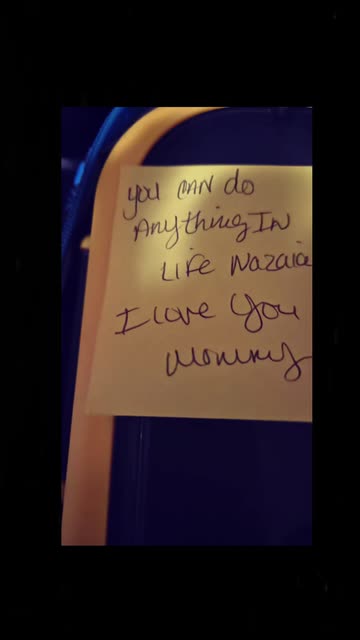 you CAN do
AnythingIN
Life Nazaia
I love You
mommy